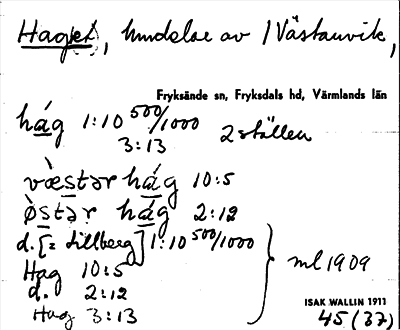 Haget, hundelar av 1 Västanvik,
Fryksände sn, Fryksdals hd, Värmlands län
hág 1:10 500/1000 2 ställen
3:13
væ̀stər hág 10:5
ø̀stər hág 2:12
d. [= Lillberg] 1:10 500/1000
Hag 10:5 ml 1909
d. 2:12
Hag 3:13
ISAK WALLIN 1911
45 (37)